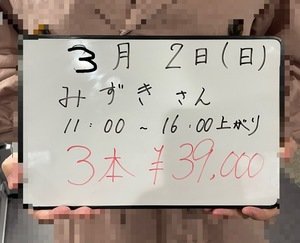 3月 2日(日)
みずき さん
11:00 ~ 16:00上がり
3本 ¥39,000